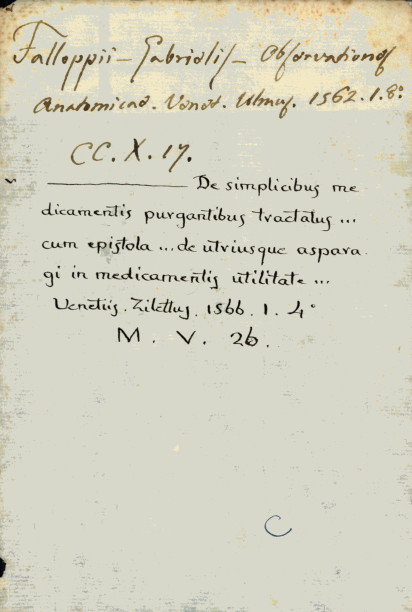 Falloppii - Gabrielis - Observationes
Anatomicae. Venet. Ulmus. 1562. 1. 8°
CC. X. 17.
——— De simplicibus me
dicamentis purgantibus tractatus ...
cum epistola ... de utriusque aspara.
gi in medicamentis utilitate ...
Venetiis. Zilettus. 1566. 1. 4°
M. V. 26.
C